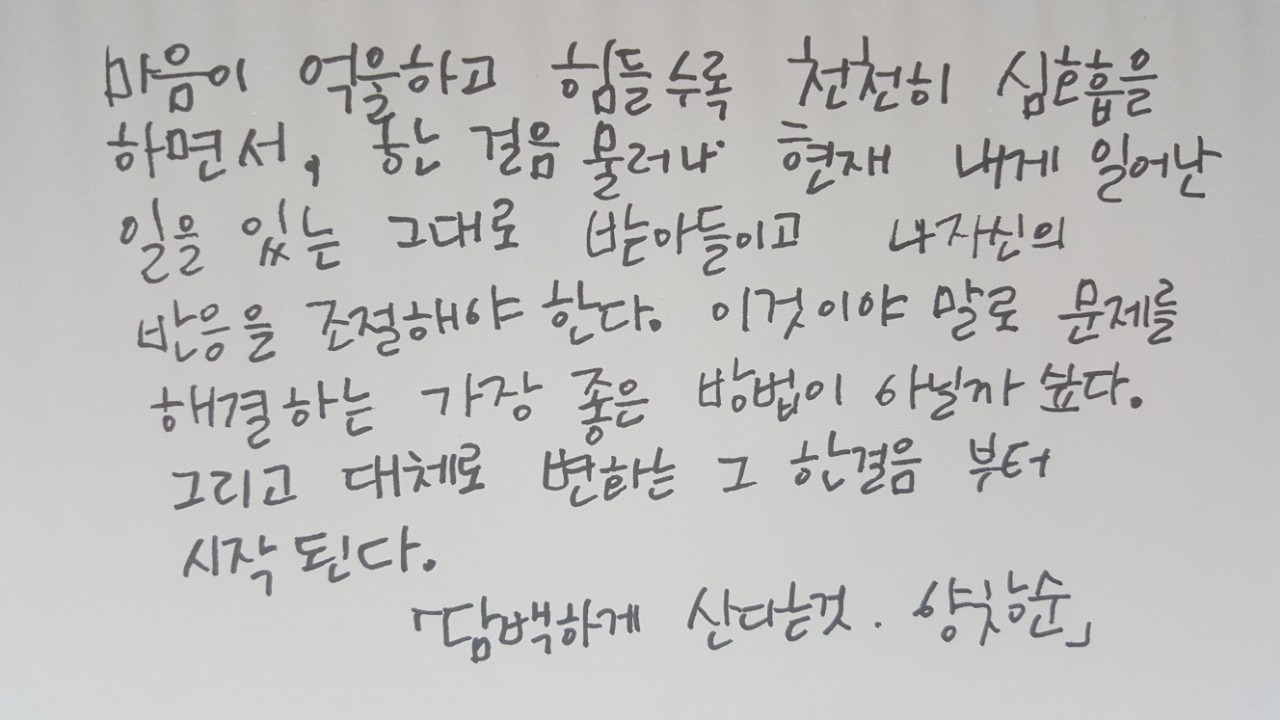 마음이 억울하고 힘들수록 천천히 심호흡을
하면서, 한 걸음 물러나 현재 내게 일어난
일을 있는 그대로 받아들이고 나자신의
반응을 조절해야 한다. 이것이야 말로 문제를
해결하는 가장 좋은 방법이 아닐까 싶다.
그리고 대체로 변화는 그 한걸음 부터
시작 된다.
「담백하게 산다는것. 양창순」